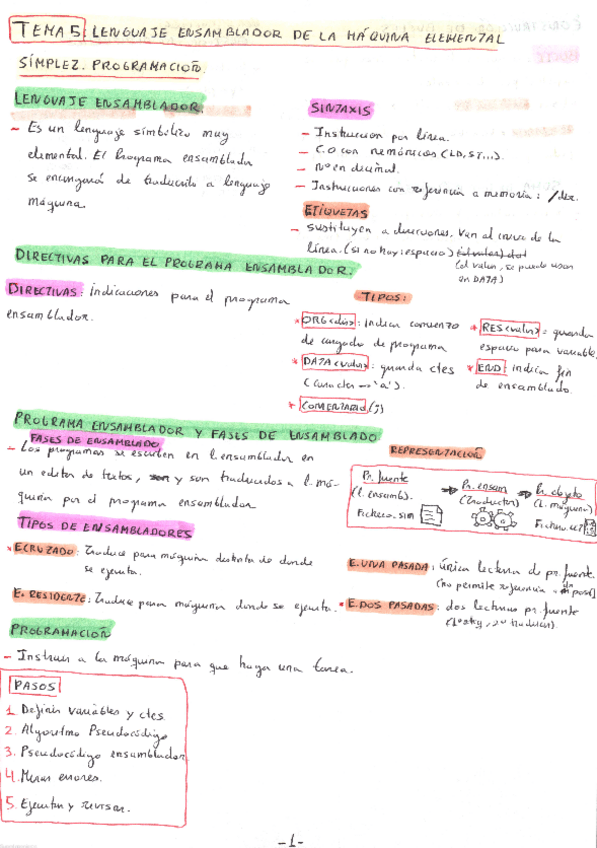 TEMA 5 LENGUAJE ENSAMBLADOR DE LA MÁQUINA ELEMENTAL
SÍMPLEZ. PROGRAMACIÓN.
LENGUAJE ENSAMBLADOR.
– Es un lenguaje simbólico muy
elemental. El Programa ensamblador
se encargará de traducirlo a lenguaje
máquina.
SINTAXIS
– Instrucción por línea.
– C.O con nemónicos (LD, ST...).
– Nº en decimal.
– Instrucciones con referencia a memoria: /dir.
ETIQUETAS
– Sustituyen a direcciones. Van al inicio de la
línea. (si no hay: espacio)
(el valor, se puede usar
en DATA)
DIRECTIVAS PARA EL PROGRAMA ENSAMBLADOR.
DIRECTIVAS: Indicaciones para el programa
ensamblador.
TIPOS:
* ORG<dir>: Indica comienzo
de cargado de programa
* DATA<valor>: guarda ctes
(caracter → 'a').
* COMENTARIO (;)
* RES<valor>: guarda
espacio para variable.
* END: indica fin
de ensamblado.
PROGRAMA ENSAMBLADOR Y FASES DE ENSAMBLADO
FASES DE ENSAMBLADO
– Los programas se escriben en l. ensamblador en
un editor de textos, y son traducidos a l. má-
quina por el programa ensamblador
REPRESENTACIÓN
Pr. fuente → Pr. ensam → Pr. objeto
(l. ensamb). (Traductor) (l. máquina)
Fichero.sim
TIPOS DE ENSAMBLADORES
* E CRUZADO: Traduce para máquina distinta de donde
se ejecuta.
E. RESIDENTE: Traduce para máquina donde se ejecuta.
E. UNA PASADA: única lectura de pr. fuente.
(no permite referencia
* E. DOS PASADAS: dos lecturas pr. fuente
PROGRAMACIÓN
– Instruir a la máquina para que haga una tarea.
PASOS
1. Definir variables y ctes.
2. Algoritmo Pseudocódigo
3. Pseudocódigo ensamblador
4. Mirar errores.
5. Ejecutar y revisar.
-1-